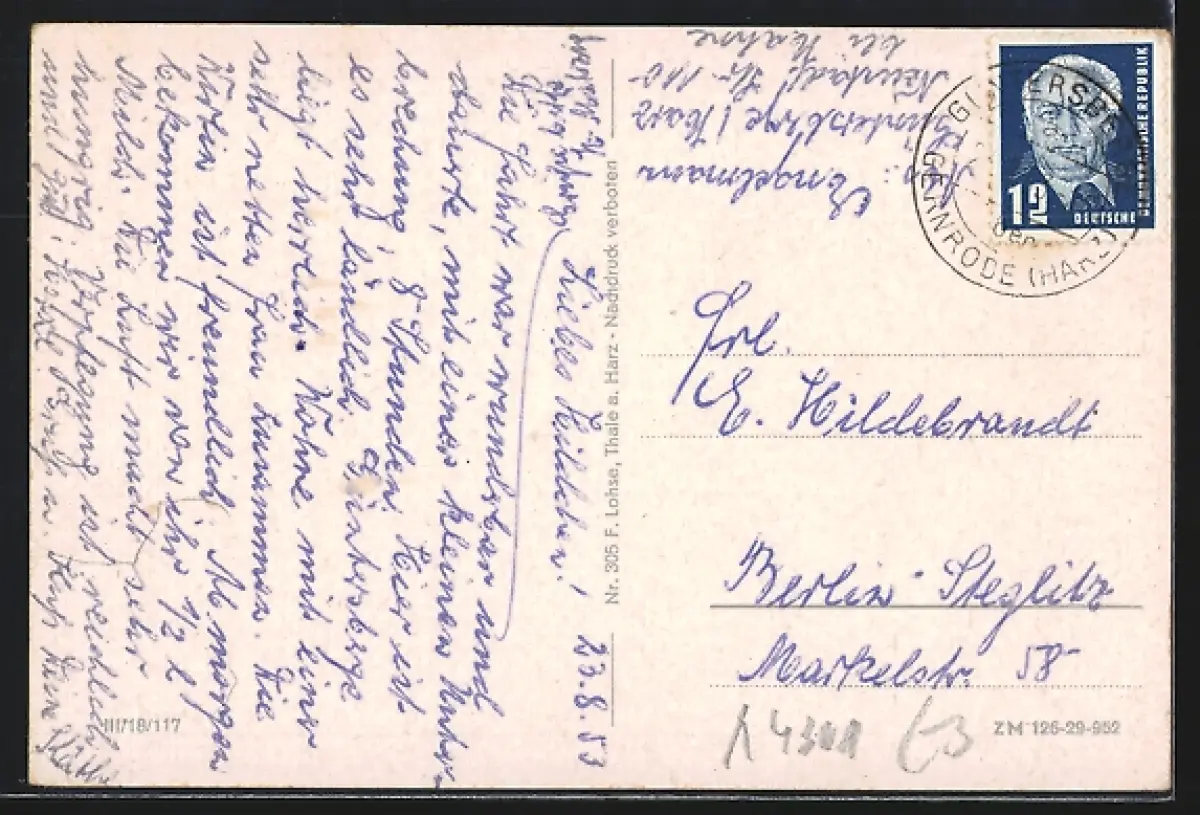 Engelmann
Güntersberge / Harz
Neustadt Str 110
bei Kähne
GÜNTERSBERGE
GERNRODE (HARZ)
12
DEUTSCHE
DEMOKRATISCHE REPUBLIK
Liebes Hildchen! 23.8.53
Die Fahrt war wunderbar und
dauerte, mit einer kleinen Unter-
brechung, 8 Stunden. Hier ist
es sehr ländlich. Güntersberge
liegt herrlich. Wohne mit einer
sehr netten Frau zusammen. Die
Wirtin ist freundlich. M. morgen
bekommen wir von ihr 1/2 l
Milch. Die Luft macht sehr
hungrig. Verpflegung ist reichlich
und gut.
Nr. 305 F. Lohse, Thale a. Harz - Nachdruck verboten
Frl.
E. Hildebrandt
Berlin-Steglitz
Markelstr. 58
III/18/117
ZM 126-29-952